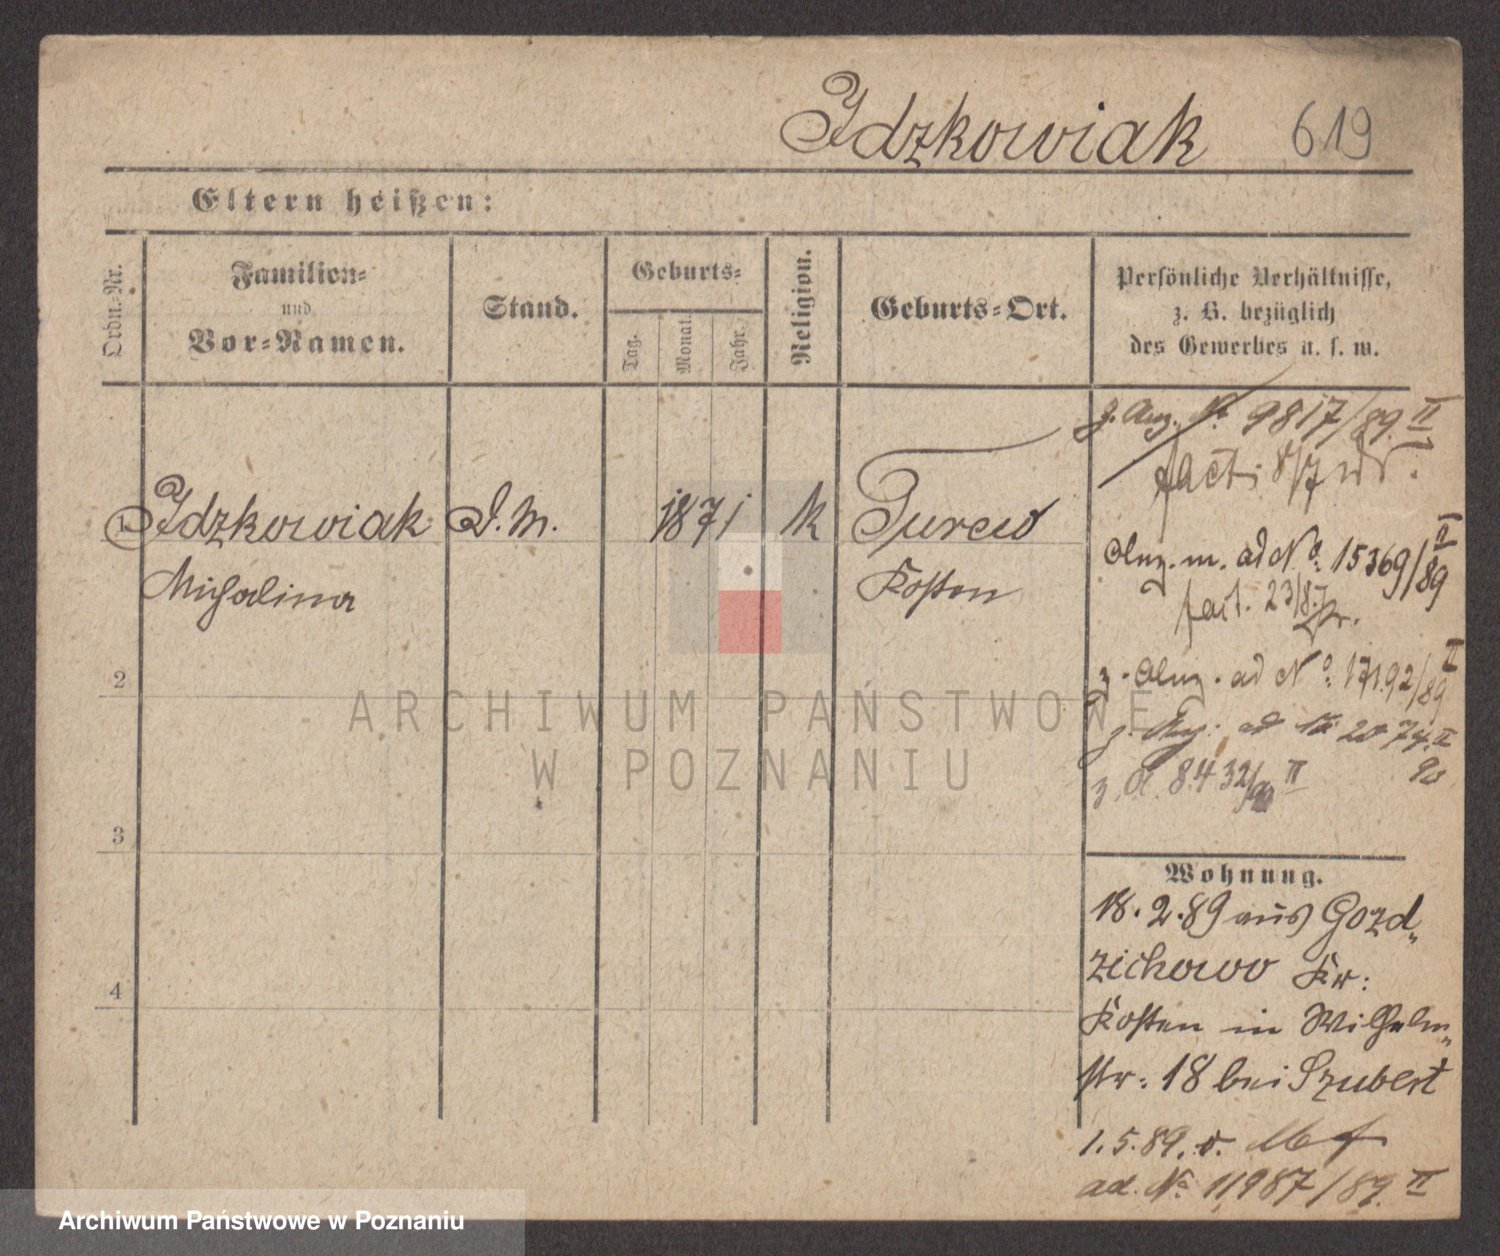 Idzkowiak 619
Eltern heißen:
Ordn.-Nr.
Familien-
und
Vor-Namen.
Stand.
Geburts-
Tag.
Monat.
Jahr.
Religion.
Geburts-Ort.
Persönliche Verhältnisse,
z. B. bezüglich
des Gewerbes u. s. w.
1 Idzkowiak D. M. 1871 k Turew
Michalina Kosten
2
3
4
z. Anz. No 9817/89. II
fact: 8/7
Anz. m. ad No: 15369/89 II
fact. 23/8.
z. Anz. ad No: 17192/89 II
z. Anz: ad No 2074. II
90
z. A. 8432/90 II
Wohnung.
18.2.89 aus Gozd„
zichowo Kr:
Kosten in Wilhelm„
str: 18 bei Szubert
1.5.89. v.
ad. No 11987/89. II
ARCHIWUM PAŃSTWOWE
W POZNANIU
Archiwum Państwowe w Poznaniu